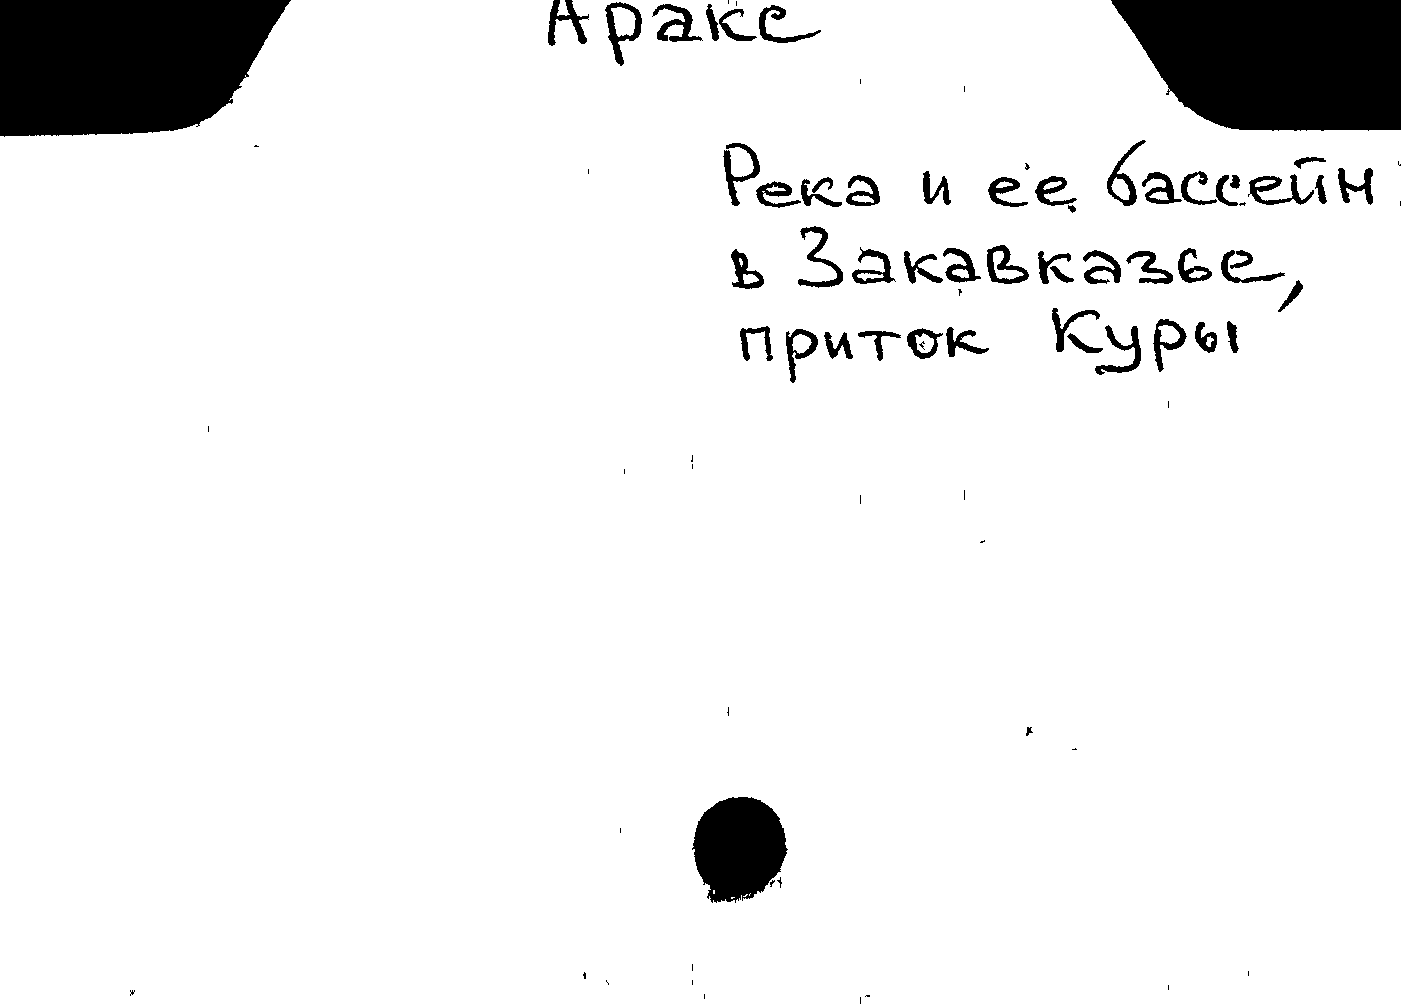 Аракс
Река и ее бассейн
в Закавказье,
приток Куры